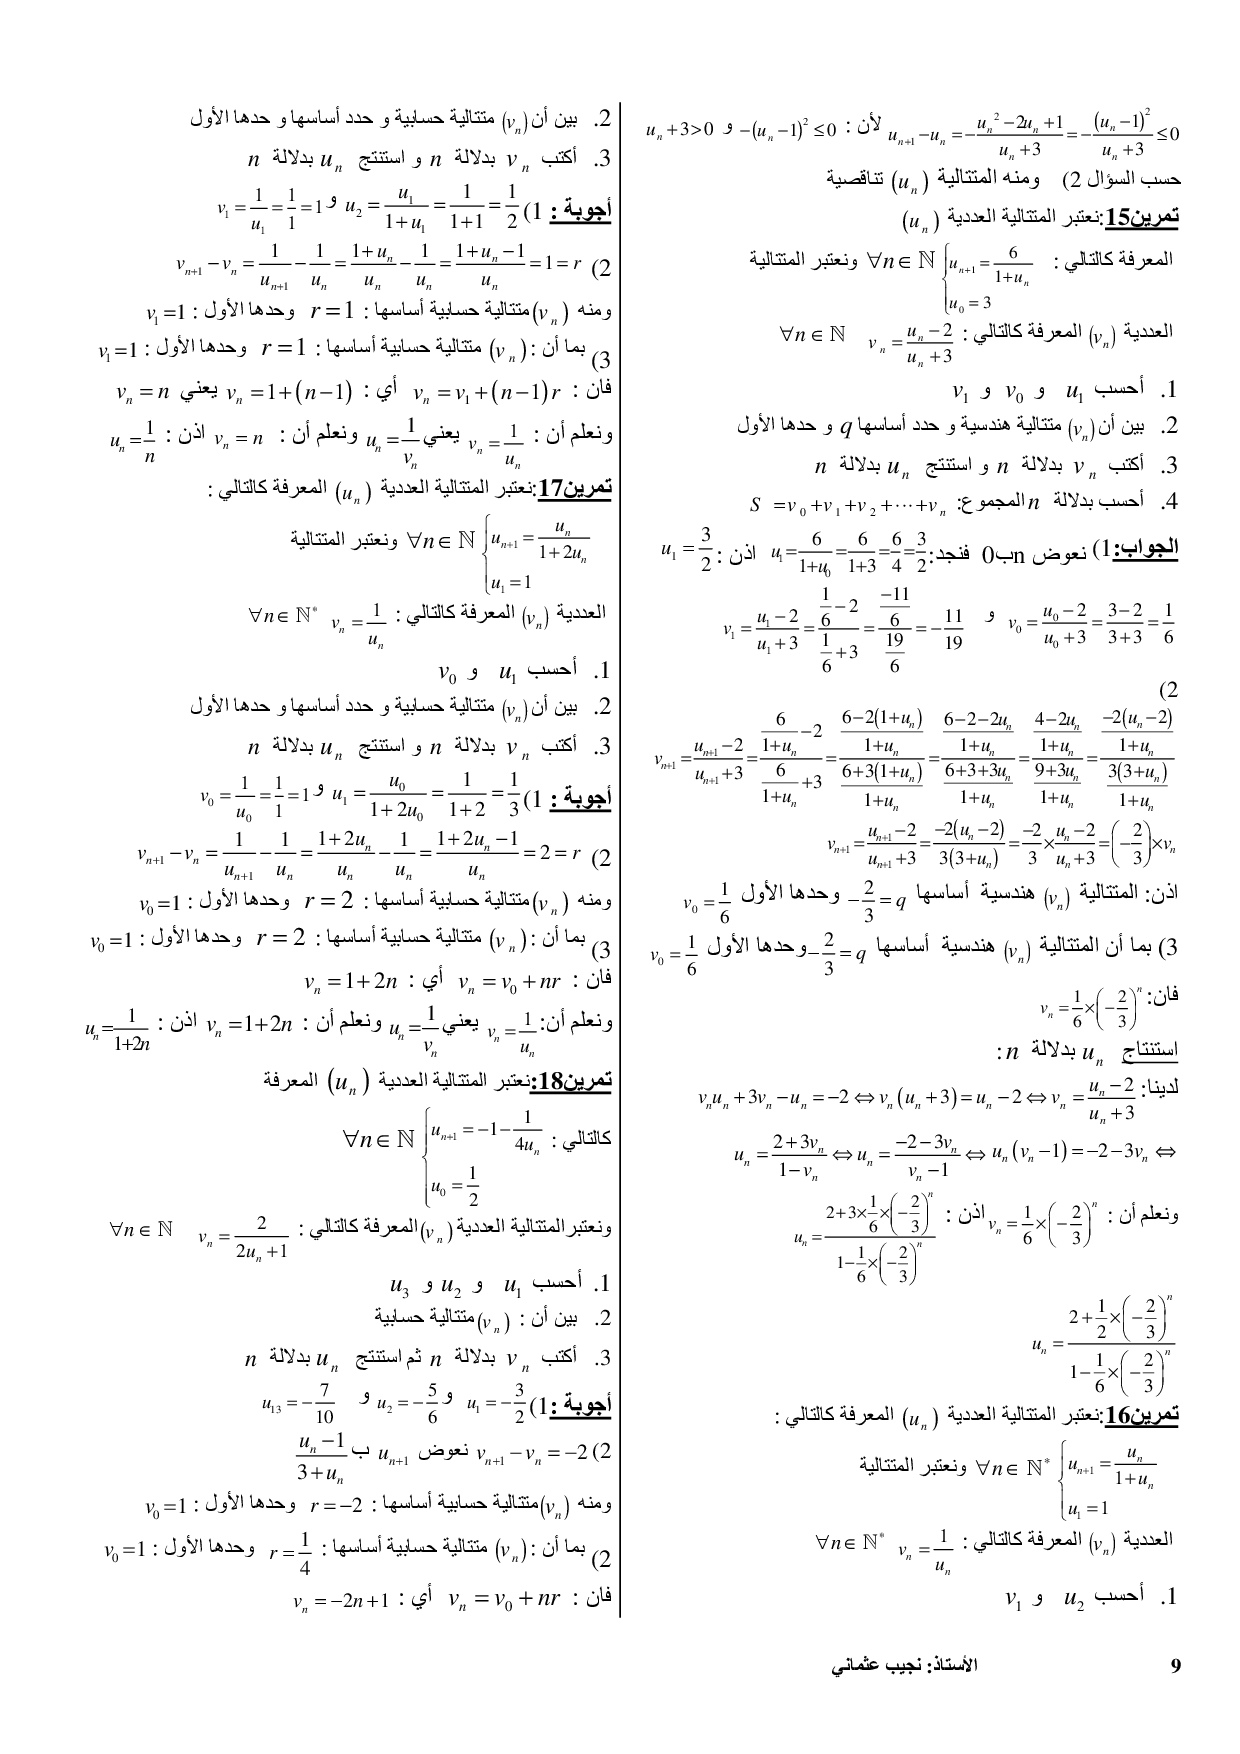 u_{n+1} − u_n = −(u_n² − 2u_n + 1)/(u_n + 3) = −(u_n − 1)²/(u_n + 3) ≤ 0 لأن : −(u_n − 1)² ≤ 0 و u_n + 3 > 0
حسب السؤال 2) ومنه المتتالية (u_n) تناقصية
تمرين15:نعتبر المتتالية العددية (u_n)
المعرفة كالتالي : { u_{n+1} = 6/(1+u_n) ; u_0 = 3 ∀n ∈ ℕ ونعتبر المتتالية
العددية (v_n) المعرفة كالتالي : v_n = (u_n − 2)/(u_n + 3) ∀n ∈ ℕ
1. أحسب u_1 و v_0 و v_1
2. بين أن (v_n) متتالية هندسية و حدد أساسها q و حدها الأول
3. أكتب v_n بدلالة n و استنتج u_n بدلالة n
4. أحسب بدلالة n المجموع: S = v_0 + v_1 + v_2 + ⋯ + v_n
الجواب:1) نعوض nب0 فنجد: u_1 = 6/(1+u_0) = 6/(1+3) = 6/4 = 3/2 اذن : u_1 = 3/2
v_0 = (u_0 − 2)/(u_0 + 3) = (3−2)/(3+3) = 1/6 و v_1 = (u_1 − 2)/(u_1 + 3) = (1/6 − 2)/(1/6 + 3) = (−11/6)/(19/6) = −11/19
2)
v_{n+1} = (u_{n+1} − 2)/(u_{n+1} + 3) = (6/(1+u_n) − 2)/(6/(1+u_n) + 3) = ((6−2(1+u_n))/(1+u_n))/((6+3(1+u_n))/(1+u_n)) = ((6−2−2u_n)/(1+u_n))/((6+3+3u_n)/(1+u_n)) = ((4−2u_n)/(1+u_n))/((9+3u_n)/(1+u_n)) = (−2(u_n−2)/(1+u_n))/(3(3+u_n)/(1+u_n))
v_{n+1} = (u_{n+1} − 2)/(u_{n+1} + 3) = −2(u_n − 2)/(3(3+u_n)) = −2/3 × (u_n − 2)/(u_n + 3) = (−2/3) × v_n
اذن: المتتالية (v_n) هندسية أساسها −2/3 = q وحدها الأول v_0 = 1/6
3) بما أن المتتالية (v_n) هندسية أساسها −2/3 = q وحدها الأول v_0 = 1/6
فان: v_n = 1/6 × (−2/3)^n
استنتاج u_n بدلالة n :
لدينا: v_n u_n + 3v_n − u_n = −2 ⇔ v_n (u_n + 3) = u_n − 2 ⇔ v_n = (u_n − 2)/(u_n + 3)
u_n = (2 + 3v_n)/(1 − v_n) ⇔ u_n = (−2 − 3v_n)/(v_n − 1) ⇔ u_n (v_n − 1) = −2 − 3v_n ⇔
ونعلم أن : v_n = 1/6 × (−2/3)^n اذن : u_n = (2 + 3 × 1/6 × (−2/3)^n)/(1 − 1/6 × (−2/3)^n)
u_n = (2 + 1/2 × (−2/3)^n)/(1 − 1/6 × (−2/3)^n)
تمرين16:نعتبر المتتالية العددية (u_n) المعرفة كالتالي :
{ u_{n+1} = u_n/(1+u_n) ; u_1 = 1 ∀n ∈ ℕ* ونعتبر المتتالية
العددية (v_n) المعرفة كالتالي : v_n = 1/u_n ∀n ∈ ℕ*
1. أحسب u_2 و v_1
2. بين أن (v_n) متتالية حسابية و حدد أساسها و حدها الأول
3. أكتب v_n بدلالة n و استنتج u_n بدلالة n
أجوبة : 1) u_2 = u_1/(1+u_1) = 1/(1+1) = 1/2 و v_1 = 1/u_1 = 1/1 = 1
2) v_{n+1} − v_n = 1/u_{n+1} − 1/u_n = (1+u_n)/u_n − 1/u_n = (1+u_n−1)/u_n = 1 = r
ومنه (v_n) متتالية حسابية أساسها : r = 1 وحدها الأول : v_1 = 1
3) بما أن : (v_n) متتالية حسابية أساسها : r = 1 وحدها الأول : v_1 = 1
فان : v_n = v_1 + (n−1)r أي : v_n = 1 + (n−1) يعني v_n = n
ونعلم أن : v_n = 1/u_n يعني u_n = 1/v_n ونعلم أن : v_n = n اذن : u_n = 1/n
تمرين17:نعتبر المتتالية العددية (u_n) المعرفة كالتالي :
{ u_{n+1} = u_n/(1+2u_n) ; u_1 = 1 ∀n ∈ ℕ ونعتبر المتتالية
العددية (v_n) المعرفة كالتالي : v_n = 1/u_n ∀n ∈ ℕ*
1. أحسب u_1 و v_0
2. بين أن (v_n) متتالية حسابية و حدد أساسها و حدها الأول
3. أكتب v_n بدلالة n و استنتج u_n بدلالة n
أجوبة : 1) u_1 = u_0/(1+2u_0) = 1/(1+2) = 1/3 و v_0 = 1/u_0 = 1/1 = 1
2) v_{n+1} − v_n = 1/u_{n+1} − 1/u_n = (1+2u_n)/u_n − 1/u_n = (1+2u_n−1)/u_n = 2 = r
ومنه (v_n) متتالية حسابية أساسها : r = 2 وحدها الأول : v_0 = 1
3) بما أن : (v_n) متتالية حسابية أساسها : r = 2 وحدها الأول : v_0 = 1
فان : v_n = v_0 + nr أي : v_n = 1 + 2n
ونعلم أن: v_n = 1/u_n يعني u_n = 1/v_n ونعلم أن : v_n = 1+2n اذن : u_n = 1/(1+2n)
تمرين18:نعتبر المتتالية العددية (u_n) المعرفة
كالتالي : { u_{n+1} = −1 − 1/(4u_n) ; u_0 = 1/2 ∀n ∈ ℕ
ونعتبرالمتتالية العددية (v_n) المعرفة كالتالي : v_n = 2/(2u_n + 1) ∀n ∈ ℕ
1. أحسب u_1 و u_2 و u_3
2. بين أن : (v_n) متتالية حسابية
3. أكتب v_n بدلالة n ثم استنتج u_n بدلالة n
أجوبة : 1) u_1 = −3/2 و u_2 = −5/6 و u_13 = −7/10
2) v_{n+1} − v_n = −2 نعوض u_{n+1} ب (u_n − 1)/(3 + u_n)
ومنه (v_n) متتالية حسابية أساسها : r = −2 وحدها الأول : v_0 = 1
2) بما أن : (v_n) متتالية حسابية أساسها : r = 1/4 وحدها الأول : v_0 = 1
فان : v_n = v_0 + nr أي : v_n = −2n + 1
الأستاذ: نجيب عثماني 9